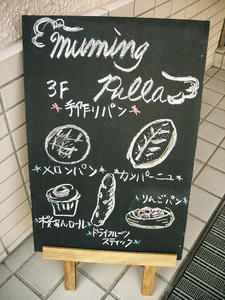 muming
3F Pulla
手作りパン
メロンパン
カンパーニュ
桜あんロール
ドライフルーツ
スティック
りんごパン